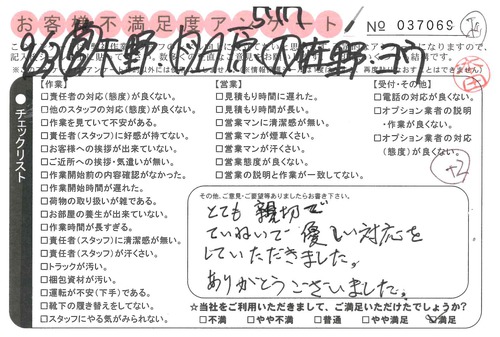 お客様不満足度アンケート
No 037069
チェックリスト
【作業】
□責任者の対応(態度)が良くない。
□他のスタッフの対応(態度)が良くない。
□作業を見ていて不安がある。
□責任者(スタッフ)に好感が持てない。
□お客様への挨拶が出来ていない。
□ご近所への挨拶・気遣いが無い。
□作業開始前の内容確認がなかった。
□作業開始時間が遅れた。
□荷物の取り扱いが雑である。
□お部屋の養生が出来ていない。
□作業時間が長すぎる。
□責任者(スタッフ)に清潔感が無い。
□責任者(スタッフ)が汗くさい。
□トラックが汚い。
□梱包資材が汚い。
□運転が不安(下手)である。
□靴下の履き替えをしてない。
□スタッフにやる気がみられない。
【営業】
□見積もり時間に遅れた。
□見積もり時間が長い。
□営業マンに清潔感が無い。
□営業マンが煙草くさい。
□営業マンが汗くさい。
□営業態度が良くない。
□営業の説明と作業が一致してない。
【受付・その他】
□電話の対応が良くない。
□オプション業者の説明
・作業が良くない。
□オプション業者の対応
(態度)が良くない。
+2
その他、ご意見・ご要望等ありましたらお書き下さい。
とても親切で
ていねいで優しい対応を
していただきました。
ありがとうございました。
☆当社をご利用いただきまして、ご満足いただけたでしょうか?
□不満 □やや不満 □普通 □やや満足 ☑満足